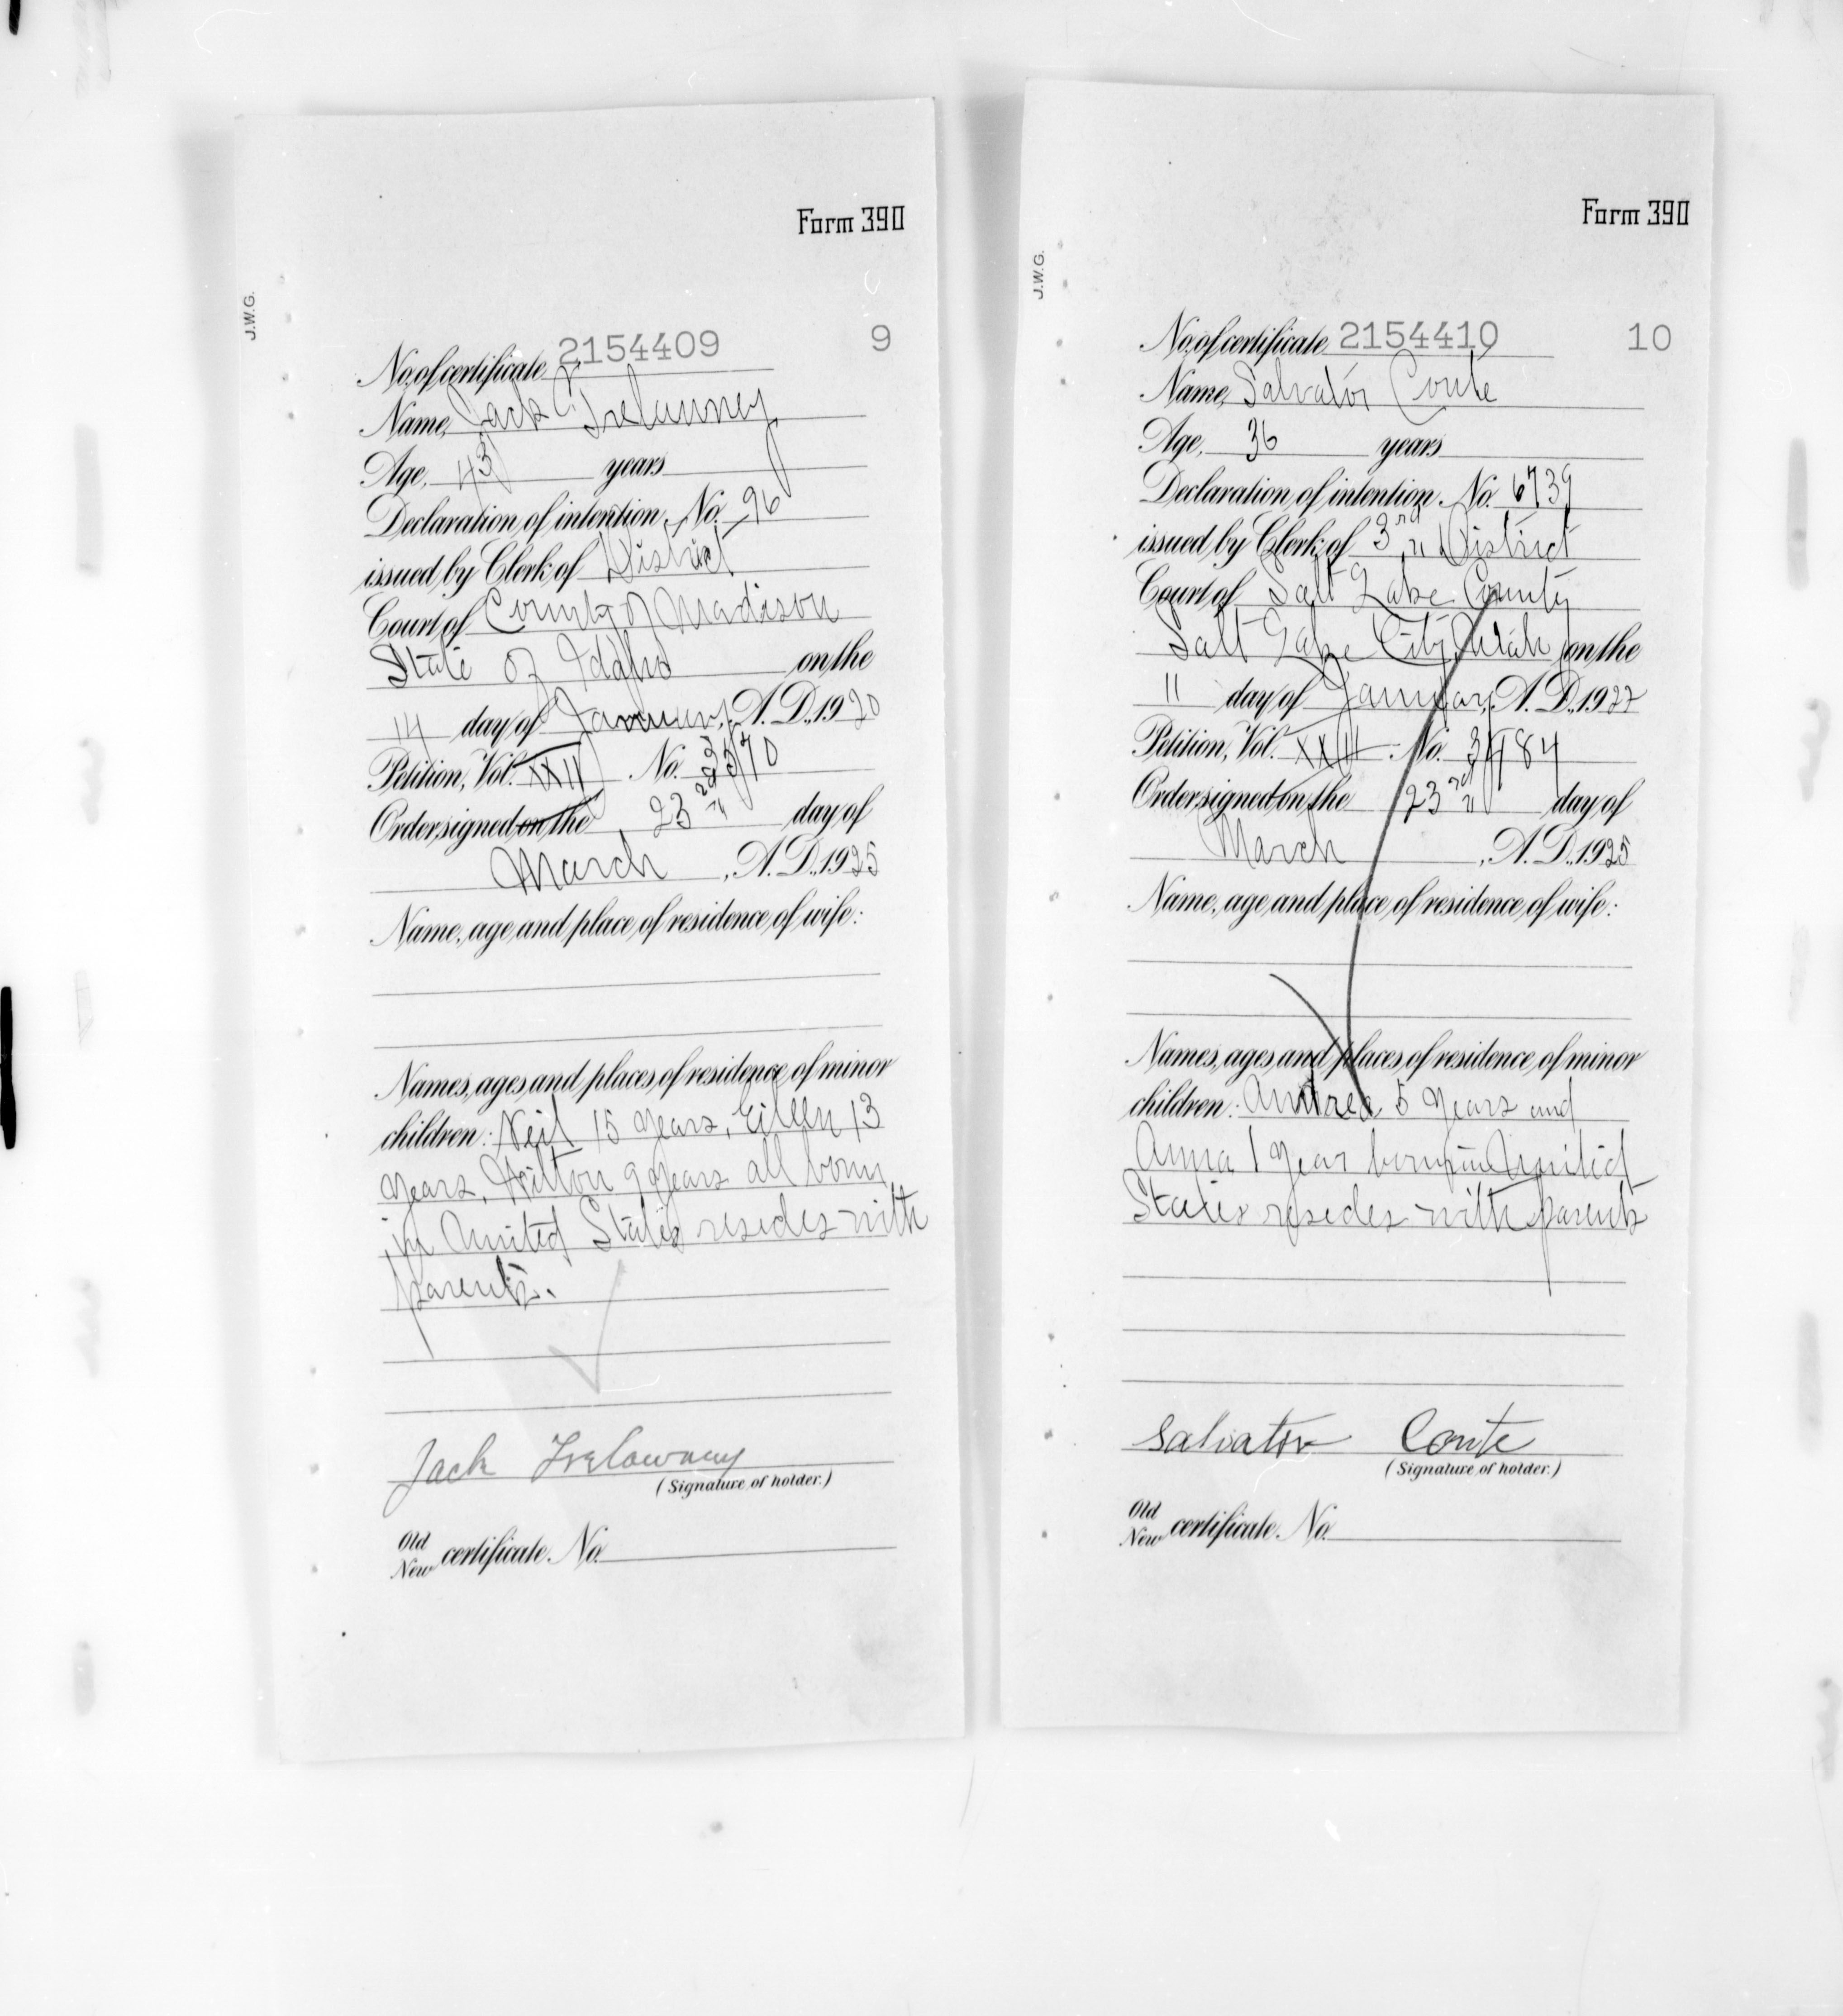 Form 390
J.W.G.
No. of certificate 2154409 9
Name, Jack Trelawney
Age, 43 years
Declaration of intention, No. 96
issued by Clerk of District
Court of County of Madison
State of Idaho on the
14 day of January, A.D., 1920
Petition, Vol. XXII No.
Order signed on the 23rd day of
March, A.D., 1925
Name, age and place of residence of wife:
Names, ages and places of residence of minor
children: Neil 15 years, Eileen 13
years, Hilton 9 years all born
in United States resides with
parents.
Jack Trelawney
(Signature of holder.)
Old
New certificate No.
Form 390
J.W.G.
No. of certificate 2154410 10
Name, Salvator Conte
Age, 36 years
Declaration of intention, No. 6739
issued by Clerk of 3rd District
Court of Salt Lake County
Salt Lake City, Utah on the
11 day of January, A.D., 1922
Petition, Vol. XXIII No. 3484
Order signed on the 23rd day of
March, A.D., 1925
Name, age and place of residence of wife:
Names, ages and places of residence of minor
children: Andrea 5 years and
Anna 1 year born in United
States resides with parents
Salvator Conte
(Signature of holder.)
Old
New certificate No.